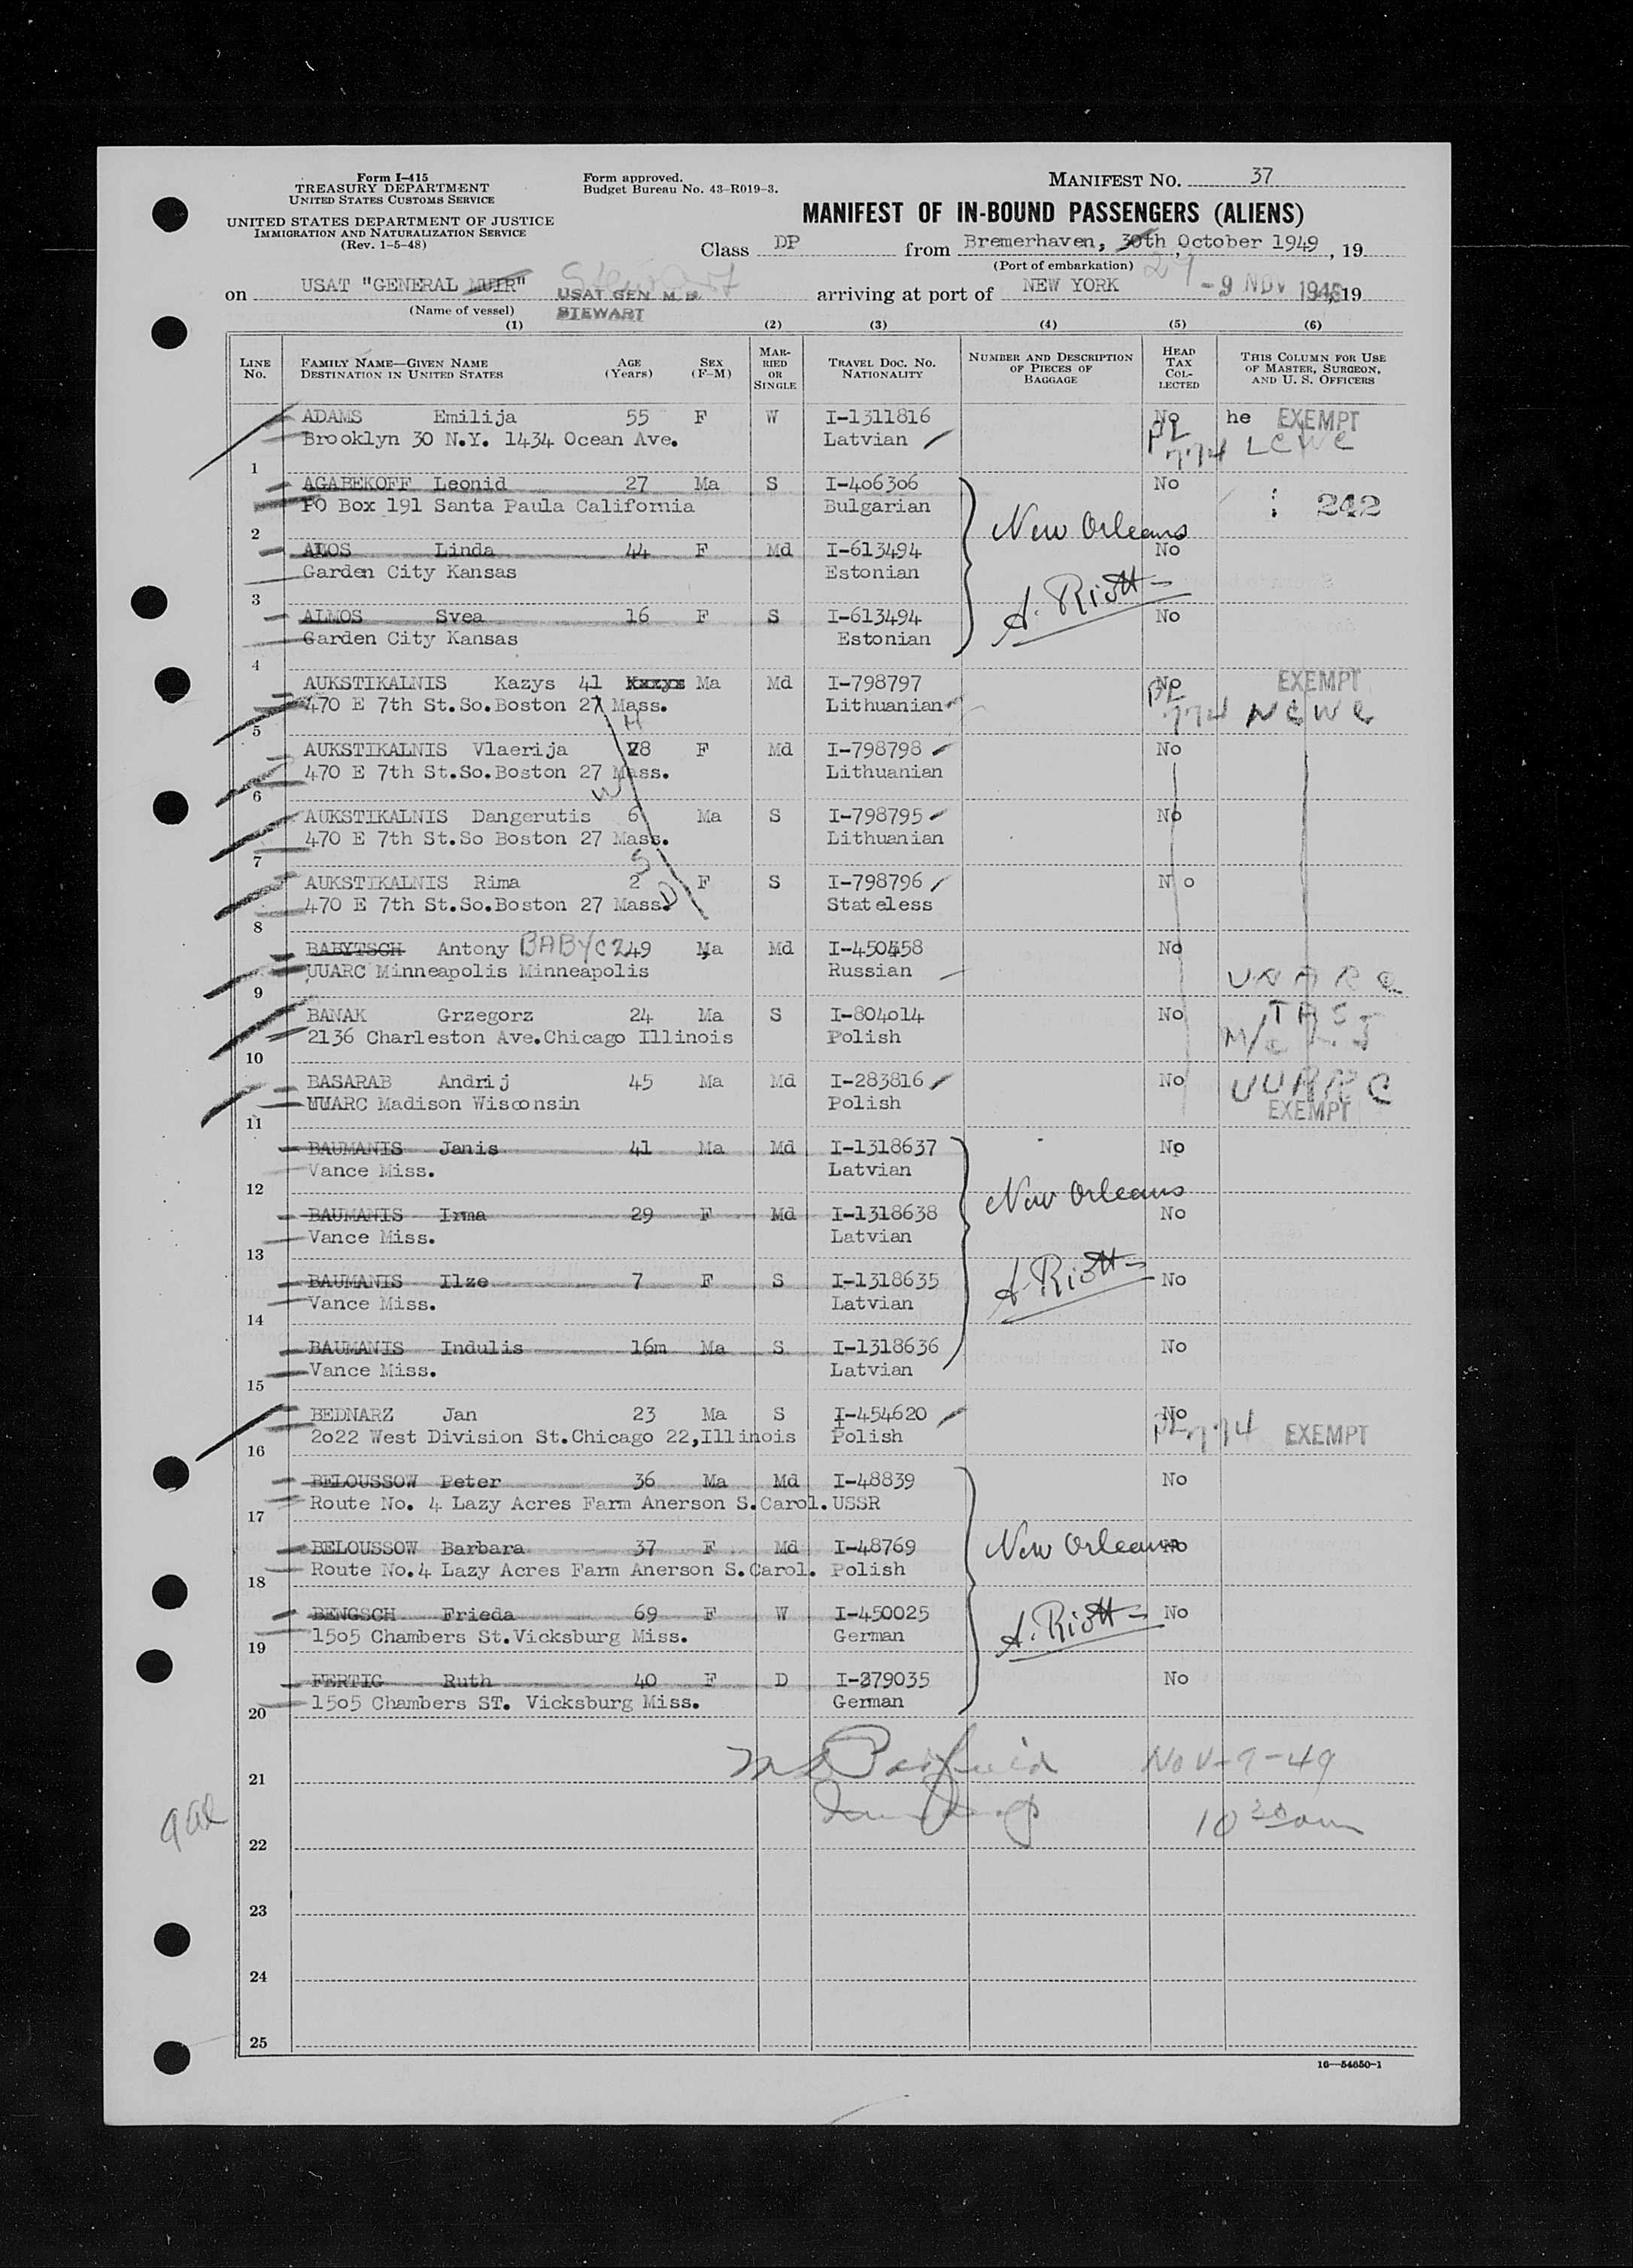 Form I-415
TREASURY DEPARTMENT
UNITED STATES CUSTOMS SERVICE
UNITED STATES DEPARTMENT OF JUSTICE
IMMIGRATION AND NATURALIZATION SERVICE
(Rev. 1-5-48)
Form approved.
Budget Bureau No. 43-R019-3.
MANIFEST NO. 37
MANIFEST OF IN-BOUND PASSENGERS (ALIENS)
Class DP from Bremerhaven, 30th October 1949, 19
(Port of embarkation) 29
on USAT "GENERAL MUIR" Stewart USAT GEN M. B. STEWART arriving at port of NEW YORK -9 NOV 1949, 19
(Name of vessel)
(1) (2) (3) (4) (5) (6)
LINE No. FAMILY NAME—GIVEN NAME DESTINATION IN UNITED STATES AGE (Years) SEX (F-M) MARRIED OR SINGLE TRAVEL DOC. NO. NATIONALITY NUMBER AND DESCRIPTION OF PIECES OF BAGGAGE HEAD TAX COLLECTED THIS COLUMN FOR USE OF MASTER, SURGEON, AND U. S. OFFICERS
ADAMS Emilija 55 F W I-1311816 No he EXEMPT
Brooklyn 30 N.Y. 1434 Ocean Ave. Latvian PL 774 LCWC
1
AGABEKOFF Leonid 27 Ma S I-406306 No
PO Box 191 Santa Paula California Bulgarian 242
2 New Orleans
ALOS Linda 44 F Md I-613494 No
Garden City Kansas Estonian
3 A. Riott
ALMOS Svea 16 F S I-613494 No
Garden City Kansas Estonian
4
AUKSTIKALNIS Kazys 41 Kazys Ma Md I-798797 No EXEMPT
470 E 7th St.So.Boston 27 Mass. Lithuanian PL 774 NCWC
5 H
AUKSTIKALNIS Vlaerija 28 F Md I-798798 No
470 E 7th St.So.Boston 27 Mass. Lithuanian
6 W
AUKSTIKALNIS Dangerutis 6 Ma S I-798795 No
470 E 7th St.So Boston 27 Mass. Lithuanian
7 S
AUKSTIKALNIS Rima 2 F S I-798796 No
470 E 7th St.So.Boston 27 Mass. D Stateless
8
BABYTSCH Antony BABYCZ 49 Ma Md I-450458 No
UUARC Minneapolis Minneapolis Russian UUARC
9
BANAK Grzegorz 24 Ma S I-804014 No
2136 Charleston Ave.Chicago Illinois Polish
10
BASARAB Andrij 45 Ma Md I-283816 No UUARC
UUARC Madison Wisconsin Polish EXEMPT
11
BAUMANIS Janis 41 Ma Md I-1318637 No
Vance Miss. Latvian
12 New Orleans
BAUMANIS Irma 29 F Md I-1318638 No
Vance Miss. Latvian
13
BAUMANIS Ilze 7 F S I-1318635 A. Riott No
Vance Miss. Latvian
14
BAUMANIS Indulis 16m Ma S I-1318636 No
Vance Miss. Latvian
15
BEDNARZ Jan 23 Ma S I-454620 No
2022 West Division St.Chicago 22,Illinois Polish PL 774 EXEMPT
16
BELOUSSOW Peter 36 Ma Md I-48839 No
Route No. 4 Lazy Acres Farm Anerson S.Carol. USSR
17
BELOUSSOW Barbara 37 F Md I-48769 New Orleans No
Route No.4 Lazy Acres Farm Anerson S.Carol. Polish
18
BENGSCH Frieda 69 F W I-450025 A. Riott No
1505 Chambers St.Vicksburg Miss. German
19
FERTIG Ruth 40 F D I-279035 No
1505 Chambers ST. Vicksburg Miss. German
20
Nov-9-49
21
10 30 am
22
23
24
25
16—54650-1